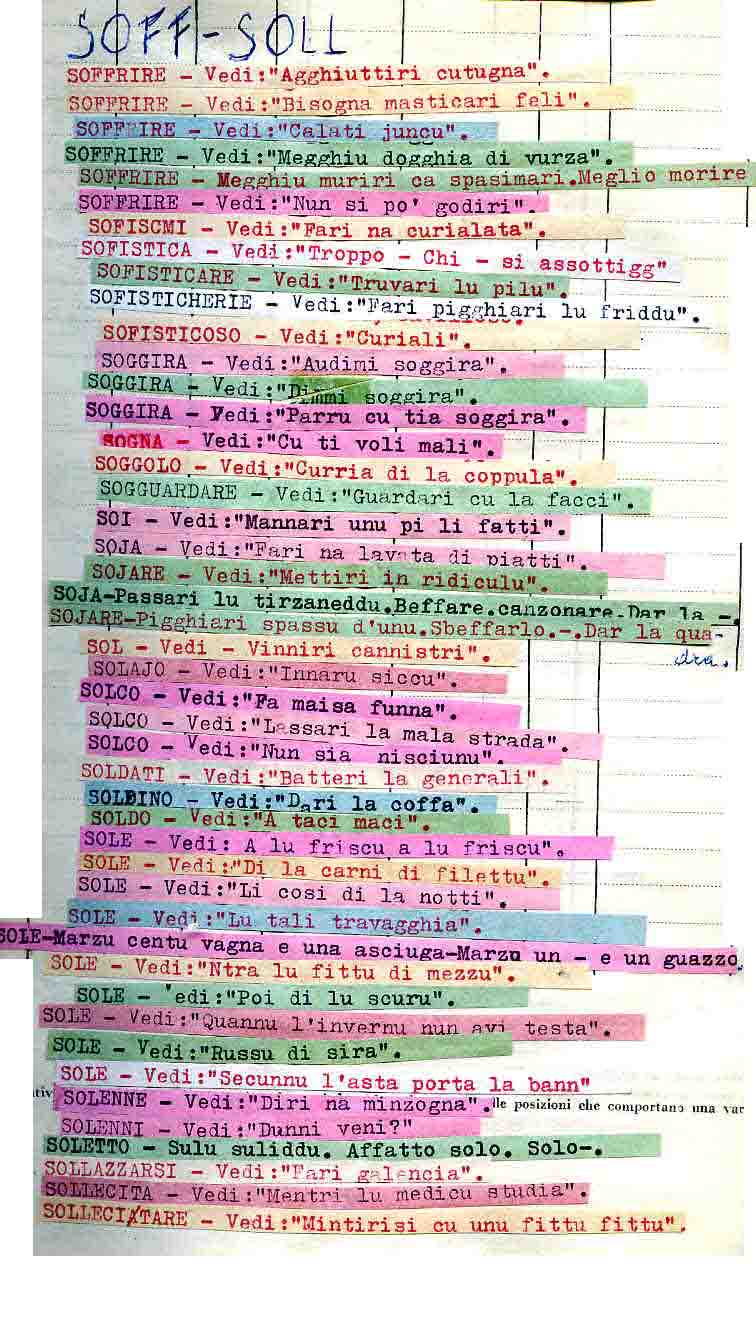 SOFF-SOLL
SOFFRIRE - Vedi:"Agghiuttiri cutugna".
SOFFRIRE - Vedi:"Bisogna masticari feli".
SOFFRIRE - Vedi:"Calati juncu".
SOFFRIRE - Vedi:"Megghiu dogghia di vurza".
SOFFRIRE - Megghiu muriri ca spasimari.Meglio morire
SOFFRIRE - Vedi:"Nun si po' godiri".
SOFISCMI - Vedi:"Fari na curialata".
SOFISTICA - Vedi:"Troppo - Chi - si assottigg"
SOFISTICARE - Vedi:"Truvari lu pilu".
SOFISTICHERIE - Vedi:"Fari pigghiari lu friddu".
SOFISTICOSO - Vedi:"Curiali".
SOGGIRA - Vedi:"Audimi soggira".
SOGGIRA - Vedi:"Dimmi soggira".
SOGGIRA - Vedi:"Parru cu tia soggira".
SOGNA - Vedi:"Cu ti voli mali".
SOGGOLO - Vedi:"Curria di la coppula".
SOGGUARDARE - Vedi:"Guardari cu la facci".
SOI - Vedi:"Mannari unu pi li fatti".
SOJA - Vedi:"Fari na lavata di piatti".
SOJARE - Vedi:"Mettiri in ridiculu".
SOJA-Passari lu tirzaneddu.Beffare.canzonare.Dar la -.
SOJARE-Pigghiari spassu d'unu.Sbeffarlo.-.Dar la qua-
dra.
SOL - Vedi - Vinniri cannistri".
SOLAJO - Vedi:"Innaru siccu".
SOLCO - Vedi:"Fa maisa funna".
SOLCO - Vedi:"Lassari la mala strada".
SOLCO - Vedi:"Nun sia nisciunu".
SOLDATI - Vedi:"Batteri la generali".
SOLDINO - Vedi:"Dari la coffa".
SOLDO - Vedi:"A taci maci".
SOLE - Vedi: A lu friscu a lu friscu".
SOLE - Vedi:"Di la carni di filettu".
SOLE - Vedi:"Li cosi di la notti".
SOLE - Vedi:"Lu tali travagghia".
SOLE-Marzu centu vagna e una asciuga-Marzo un - e un guazzo.
SOLE - Vedi:"Ntra lu fittu di mezzu".
SOLE - edi:"Poi di lu scuru".
SOLE - Vedi:"Quannu l'invernu nun avi testa".
SOLE - Vedi:"Russu di sira".
SOLE - Vedi:"Secunnu l'asta porta la bann"
SOLENNE - Vedi:"Diri na minzogna". lle posizioni che comportano una var
SOLENNI - Vedi:"Dunni veni?"
SOLETTO - Sulu suliddu. Affatto solo. Solo-.
SOLLAZZARSI - Vedi:"Fari galencia".
SOLLECITA - Vedi:"Mentri lu medicu studia".
SOLLECITARE - Vedi:"Mintirisi cu unu fittu fittu".